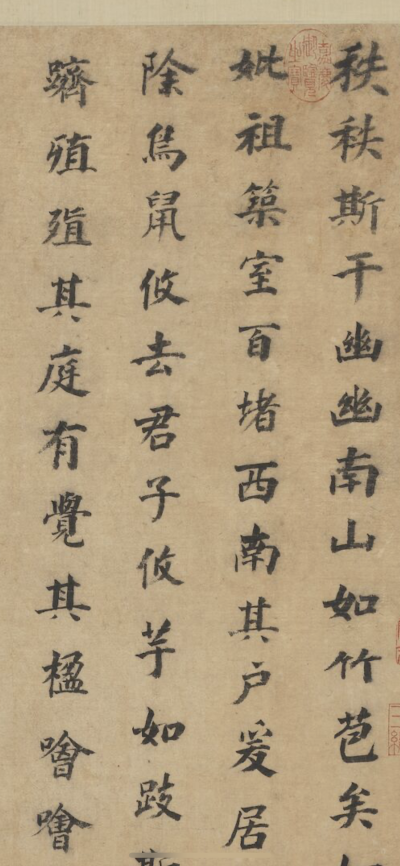 秩秩斯干幽幽南山如竹苞矣如
妣祖築室百堵西南其户爰居
除鳥鼠攸去君子攸芋如跂斯
躋殖殖其庭有覺其楹噲噲